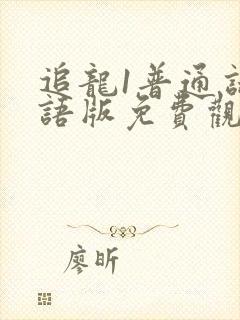 追龍1普通話
語版免費觀
廖昕